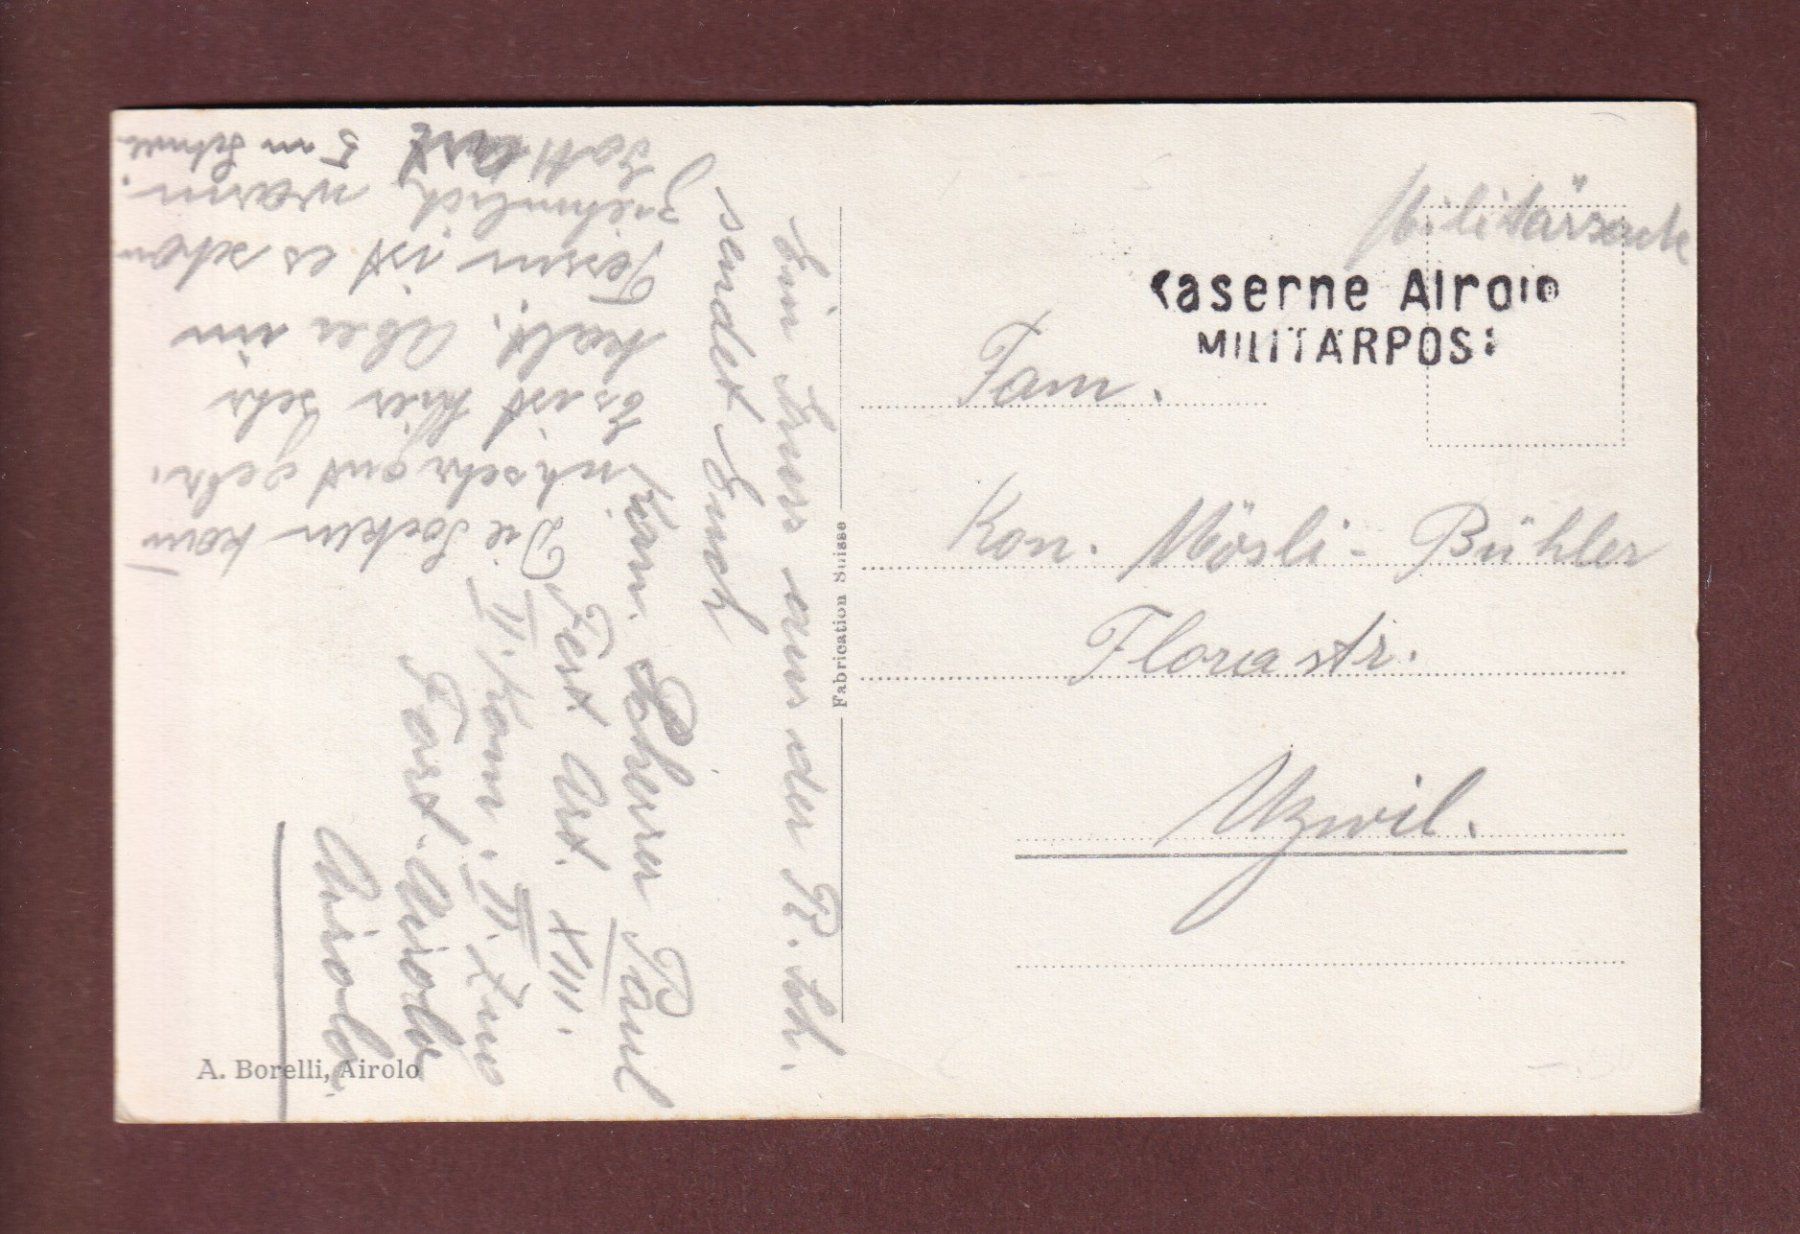 Militärsache
Kaserne Airolo
MILITÄRPOST
Fam.
Kon. Mösli-Bühler
Florastr.
Uzwil.
Fabrication Suisse
Ein Gruss aus der R. Sch.
sendet Euch
Kan. Scherrer Paul
Fest Art. XIII.
II. Kom. II. Zug
Fort. Airolo
Airolo.
Die Socken kann
ich sehr gut gebr.
Es ist hier sehr
kalt. Aber im
Tessin ist es schon
ziemlich warm.
5 m Schnee
A. Borelli, Airolo